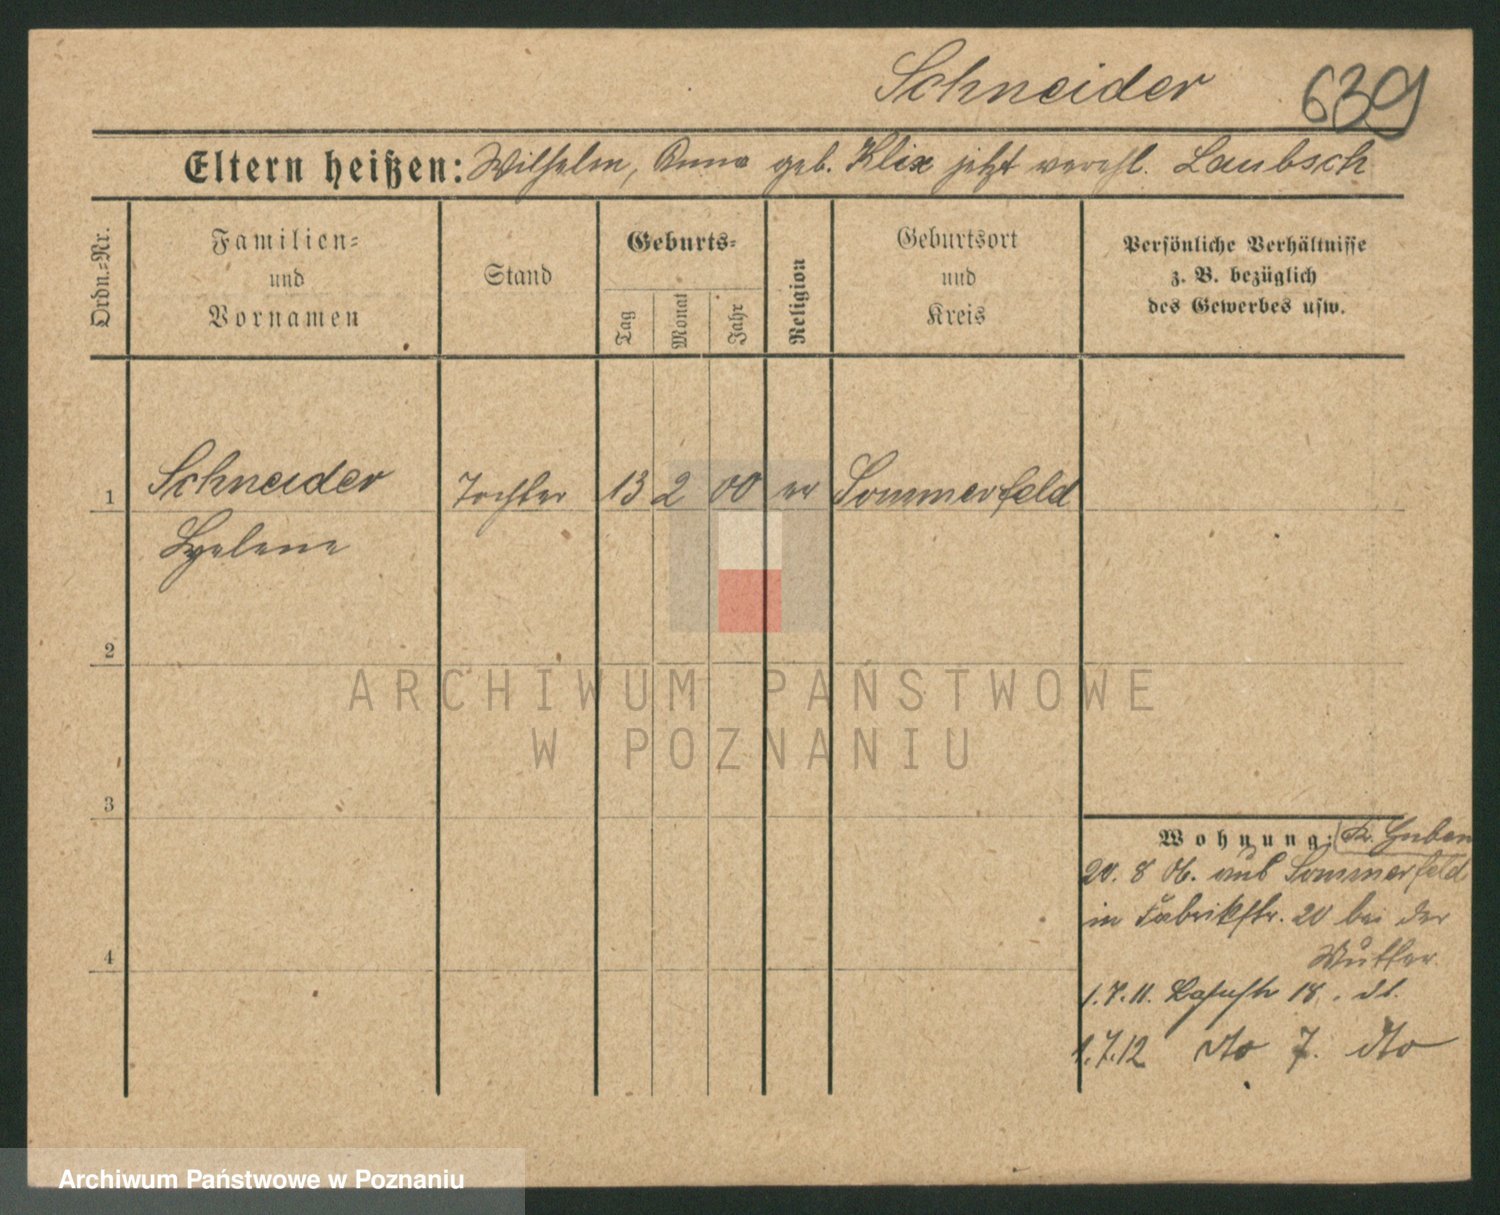 Schneider 639
Eltern heißen: Wilhelm, Anna geb. Klix jetzt verehl. Laubsch
Ordn.=Nr.
Familien=
und
Vornamen
Stand
Geburts=
Tag
Monat
Jahr
Religion
Geburtsort
und
Kreis
Persönliche Verhältnisse
z. B. bezüglich
des Gewerbes usw.
1 Schneider Tochter 13 2 00 ev Sommerfeld
Helene
2
ARCHIWUM PAŃSTWOWE
W POZNANIU
3
Wohnung: Kr. Guben
20. 8 06. aus Sommerfeld
in Fabrikstr. 20 bei der
Mutter.
1.7.11. 18. dt.
1.7.12 dto 7. dto
4
Archiwum Państwowe w Poznaniu